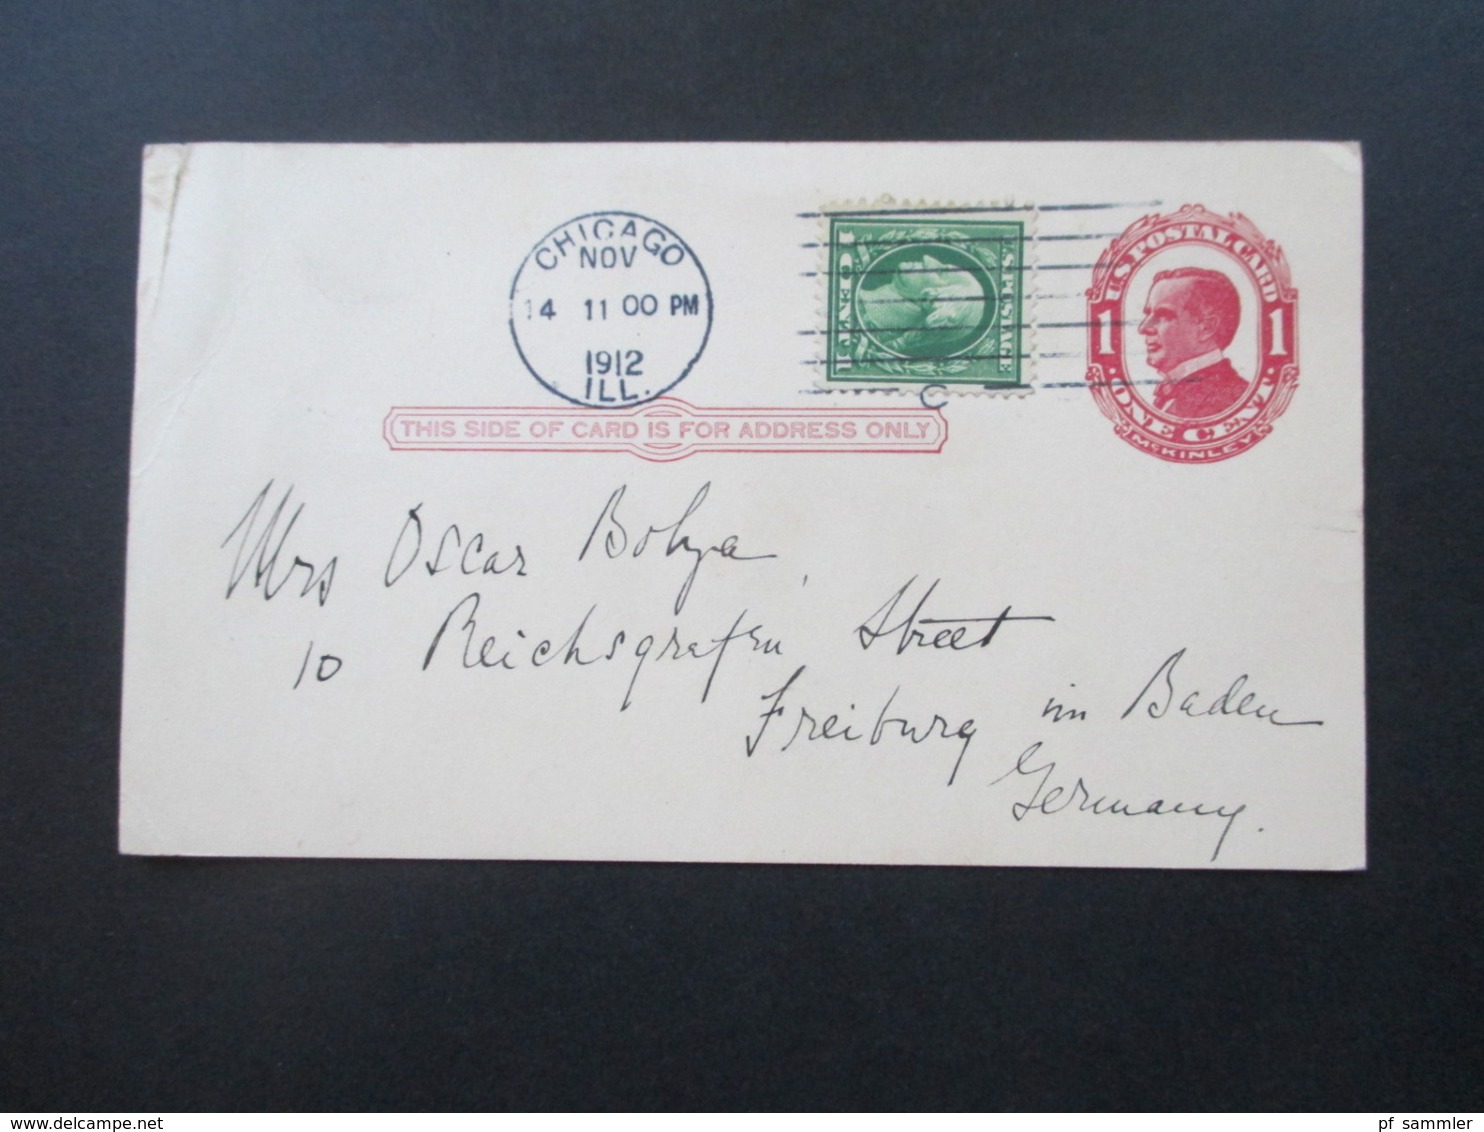 CHICAGO
NOV
14 11 00 PM
1912
ILL.
C
1 ONE CENT 1
U.S. POSTAGE
U.S. POSTAL CARD
1 1
ONE CENT
McKINLEY
THIS SIDE OF CARD IS FOR ADDRESS ONLY
Mrs Oscar Bolza
10 Reichsgrafen Street
Freiburg im Baden
Germany.
www.delcampe.net
pf_sammler